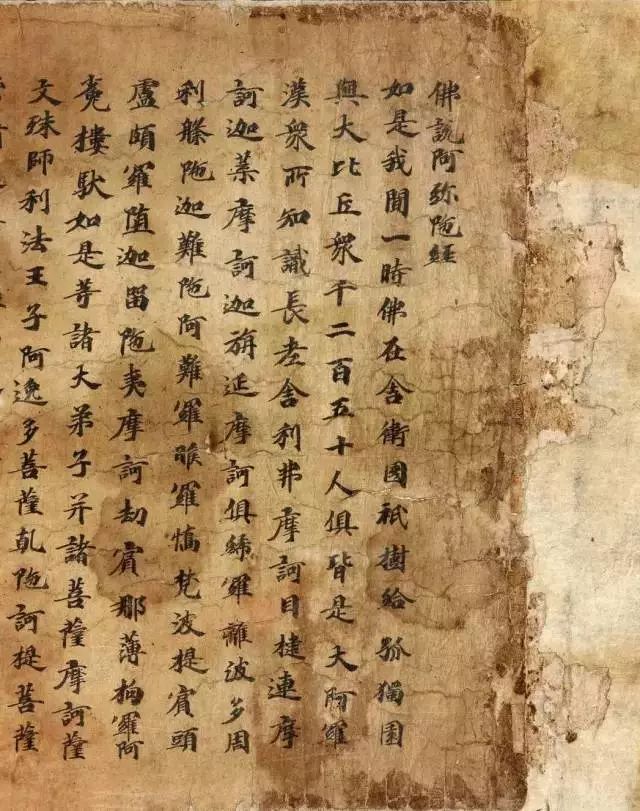 佛說阿弥陁経
如是我聞一時佛在舍衛國祇樹給孤獨園
與大比丘衆千二百五十人俱皆是大阿羅
漢衆所知識長老舍利弗摩訶目揵連摩
訶迦葉摩訶迦旃延摩訶俱絺羅離波多周
利槃陁迦難陁阿難羅睺羅憍梵波提賓頭
盧頗羅堕迦留陁夷摩訶劫賓那薄拘羅阿
㝹樓馱如是等諸大弟子并諸菩薩摩訶薩
文殊師利法王子阿逸多菩薩乹陁訶提菩薩